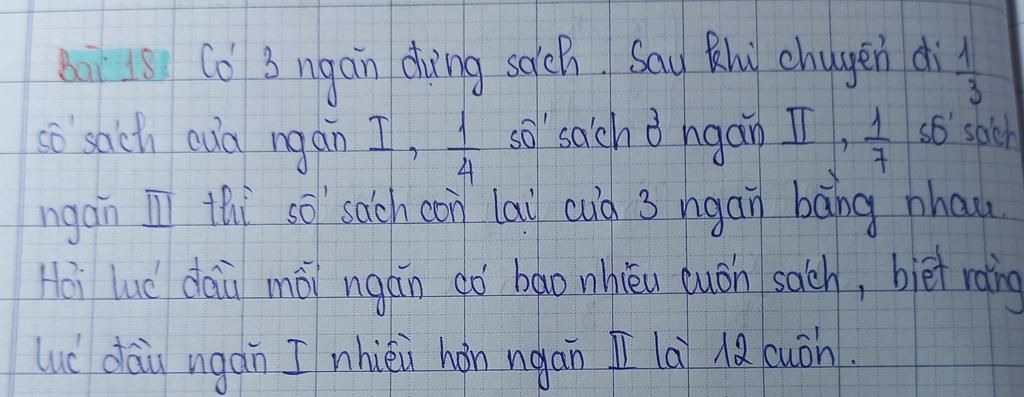 Bài 18: Có 3 ngăn đựng sách. Sau khi chuyển đi 1/3
số sách của ngăn I, 1/4 số sách ở ngăn II, 1/7 số sách
ngăn III thì số sách còn lại của 3 ngăn bằng nhau.
Hỏi lúc đầu mỗi ngăn có bao nhiêu cuốn sách, biết rằng
lúc đầu ngăn I nhiều hơn ngăn II là 12 cuốn.